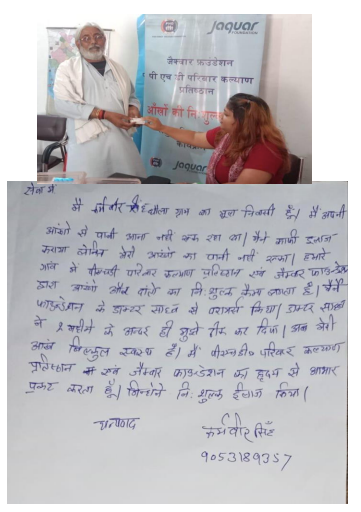 JAQUAR
FOUNDATION
जैक्वार फ़ाउंडेशन
पी एच डी परिवार कल्याण
प्रतिष्ठान
आँखों का निःशुल्क
JAQUAR
सेवा में
मैं कर्मवीर सिंह धौला ग्राम का मूल निवासी हूँ। मैं अपनी
आंखो से पानी आना नहीं रुक रहा था। मैंने काफी इलाज
कराया लेकिन मेरी आंखों का पानी नहीं रुका। हमारे
गांव में पीएचडी परिवार कल्याण प्रतिष्ठान एवं जैक्वार फाउन्डेशन
द्वारा आंखो और दांतो का निःशुल्क कैम्प लगता है। मैंने
फाउन्डेशन के डाक्टर साहब से परामर्श किया। डाक्टर साहब
ने 2 महीने के अन्दर ही मुझे ठीक कर दिया। अब मेरी
आंखे बिल्कुल स्वस्थ हैं। मैं पीएचडी परिवार कल्याण
प्रतिष्ठान एवं जैक्वार फाउन्डेशन का हृदय से आभार
प्रकट करता हूँ। जिन्होंने निःशुल्क ईलाज किया।
धन्यवाद
कर्मवीर सिंह
9053189357